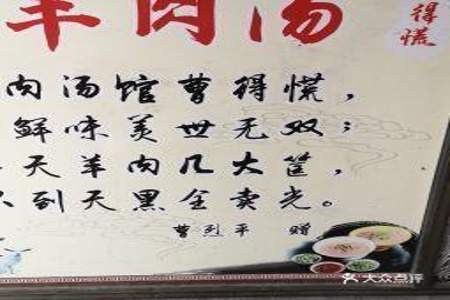 羊肉汤
得慌
肉汤馆曹得慌，
鲜味美世无双；
天羊肉几大筐，
不到天黑全卖光。
曹烈平 赠
大众点评